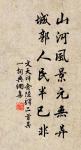 山河風景元無異
城郭人民半已非
文天祥金陵驛二首其
一詞典網書